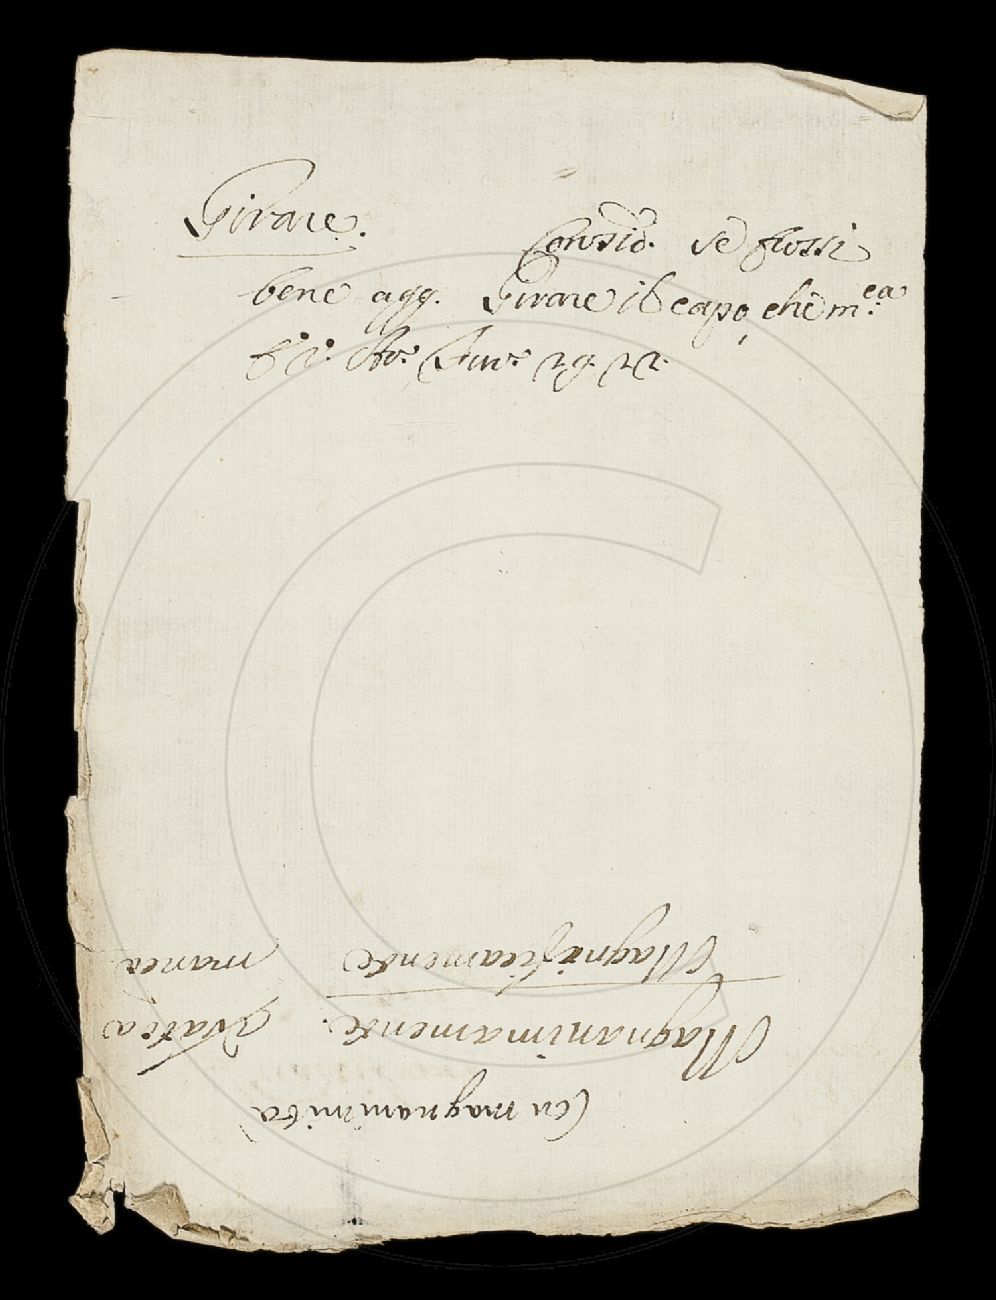 Girare.
Consid. se fossi
bene agg. Girare il capo, che m.ca
Magnificamente manca
Magnanimamente. pratica
Con magnanimità